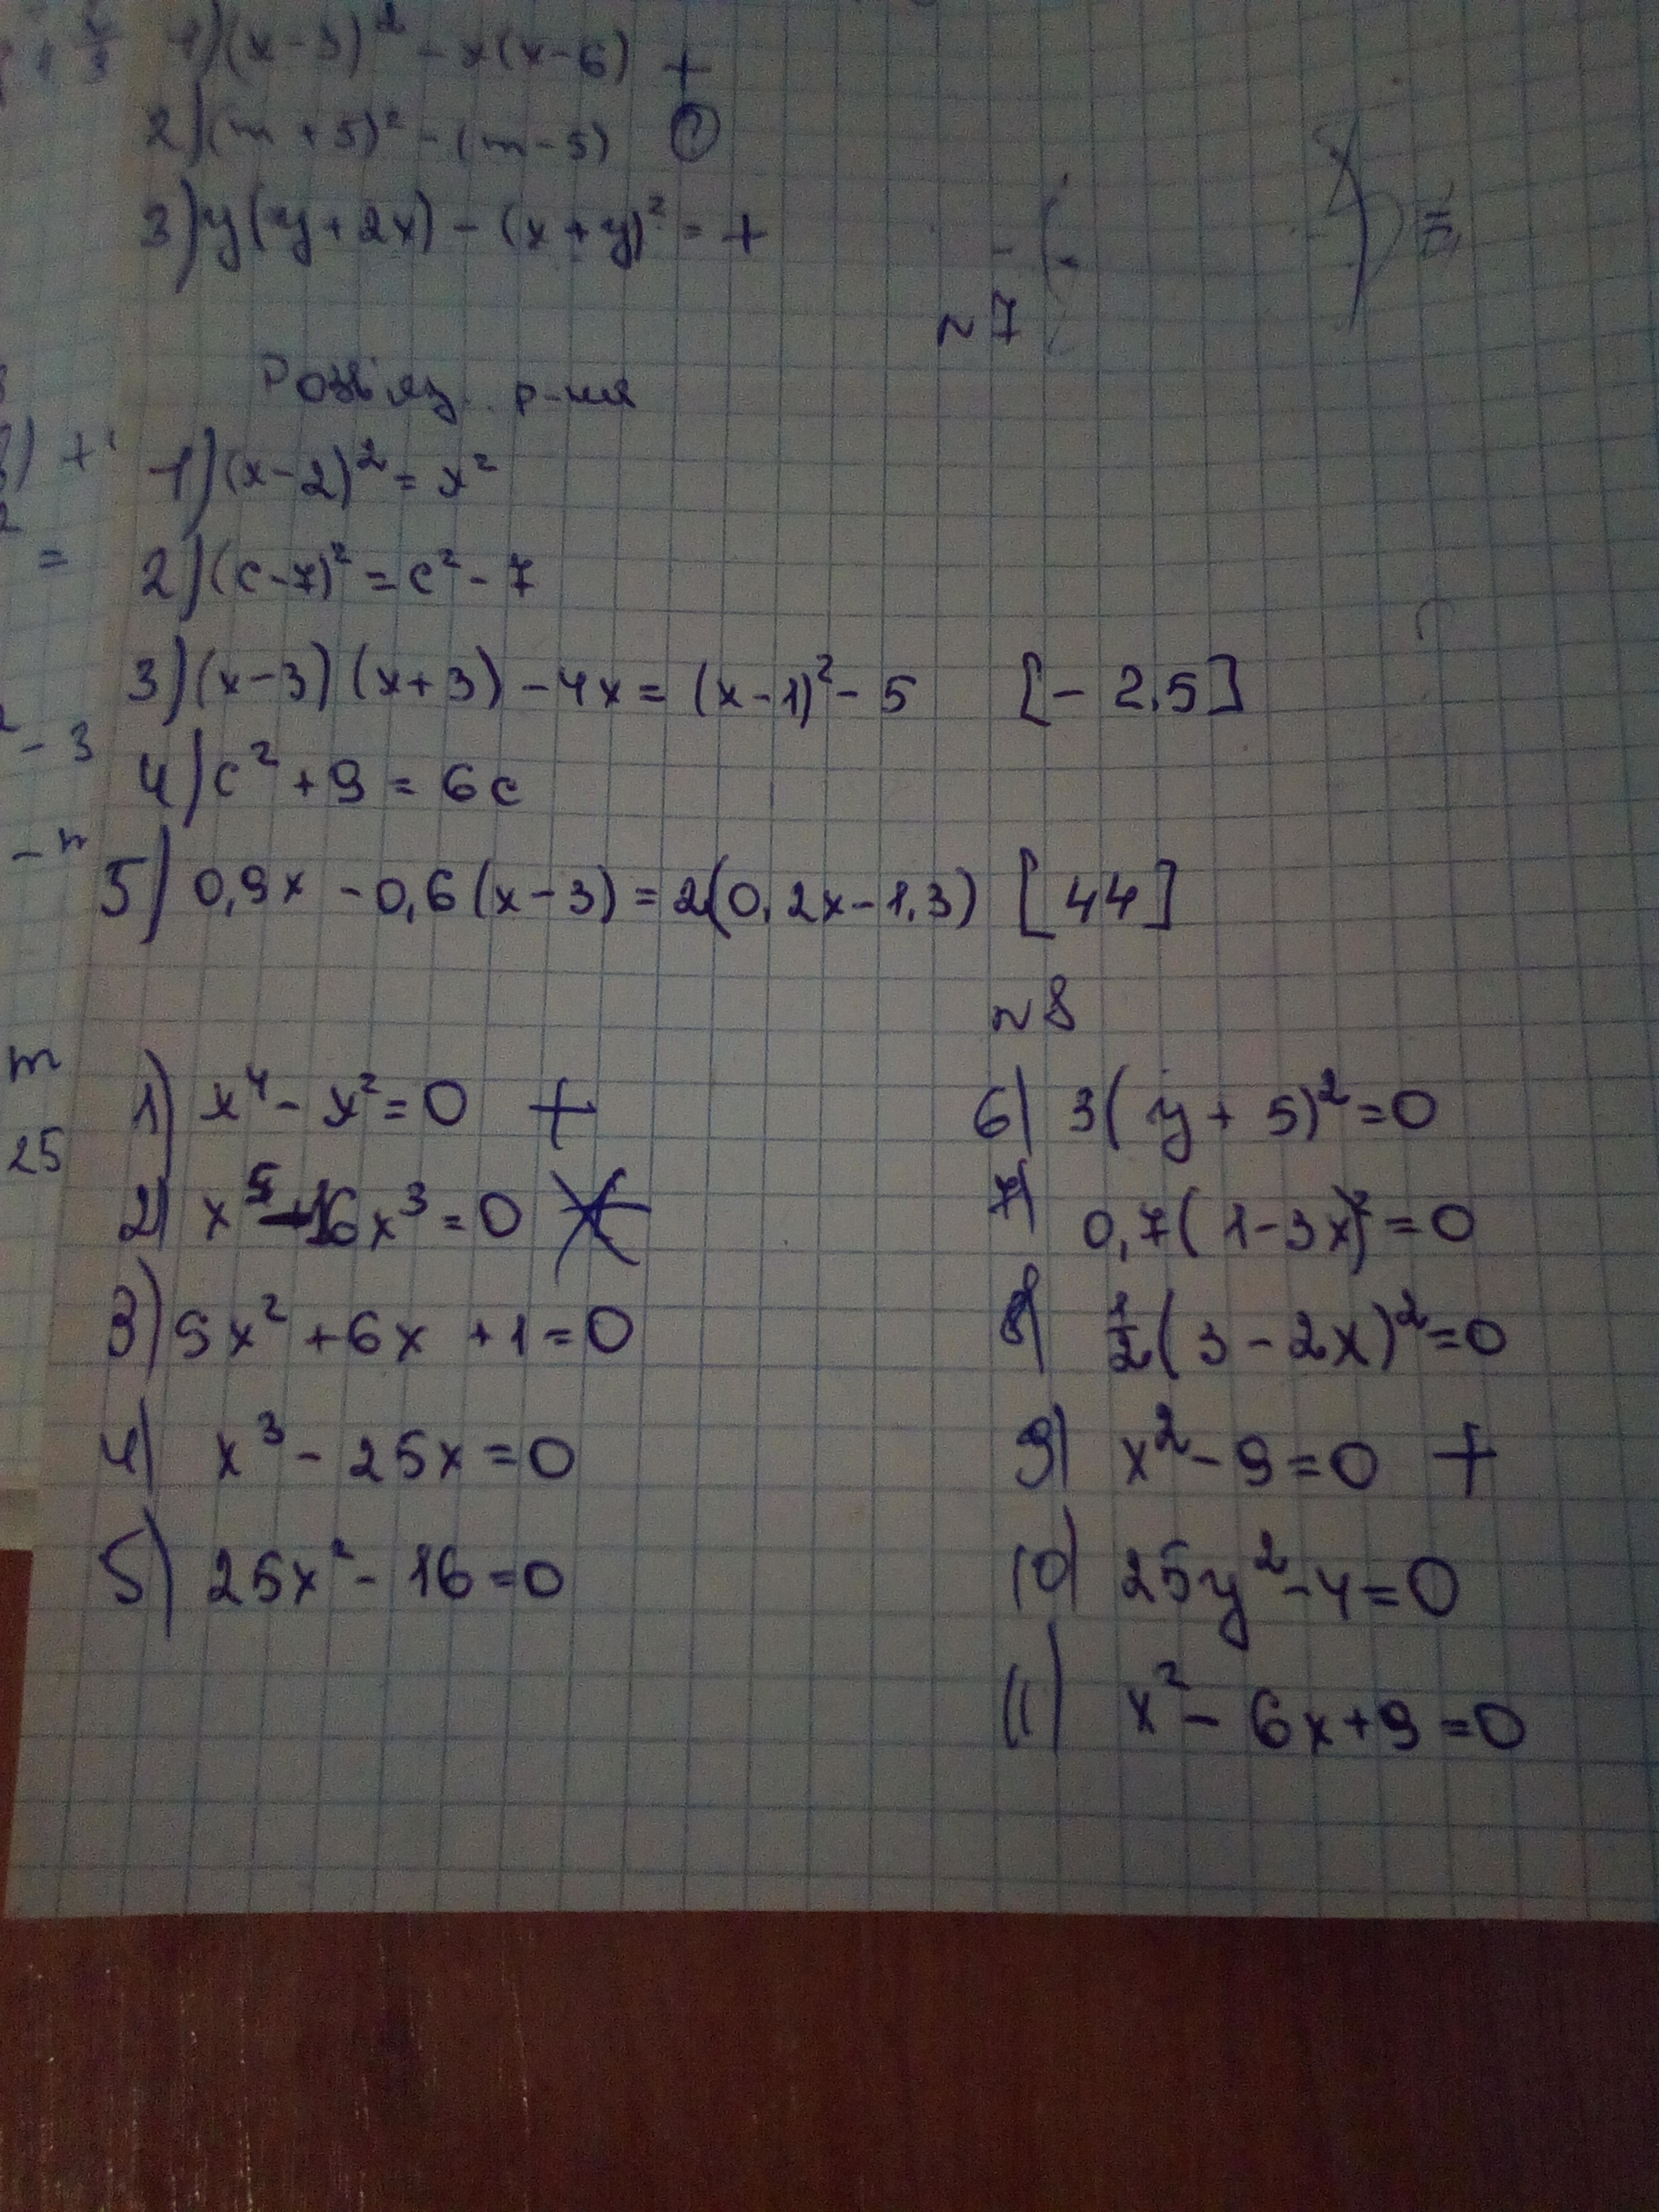 1) (x-3)² - x(x-6) +
2) (m+5)² - (m-5)
3) y(y+2x) - (x+y)² = +
N7
Розв'яз. р-ня
1) (x-2)² = x²
2) (c-7)² = c² - 7
3) (x-3)(x+3) - 4x = (x-1)² - 5 [-2.5]
- 3
4) c² + 9 = 6c
5) 0,9x - 0,6(x-3) = 2(0,2x-1,3) [44]
N8
m
25
1) x⁴ - x² = 0 +
2) x⁵ - 16x³ = 0
3) 9x² + 6x + 1 = 0
4) x³ - 25x = 0
5) 25x² - 16 = 0
6) 3(y + 5)² = 0
7) 0,7(1-3x)² = 0
8) ½(3 - 2x)² = 0
9) x² - 9 = 0 +
10) 25y² - 4 = 0
11) x² - 6x + 9 = 0